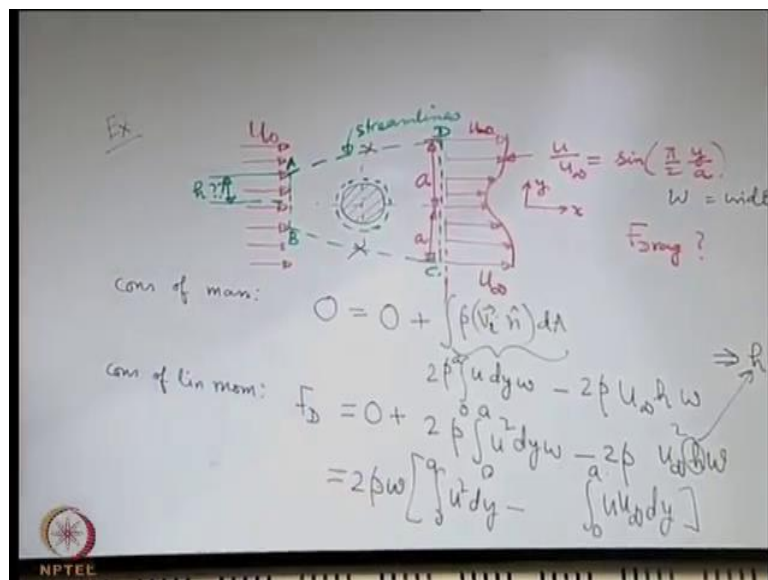 Ex.
U∞
streamlines
A
D
U∞
u/u∞ = sin(π/2 y/a)
h ??
a
y
x
W = widt
B
a
FDrag ?
C
U∞
Cons of mass: 0 = 0 + ∫ρ(V⃗r n̂)dA
2ρ∫₀ᵃ u dy w − 2ρ U∞ h w ⇒ h
Cons of lin mom: FD = 0 + 2ρ∫₀ᵃ u²dy w − 2ρ u∞² h w
= 2ρw[∫₀ᵃ u²dy − ∫₀ᵃ u u∞ dy]
NPTEL